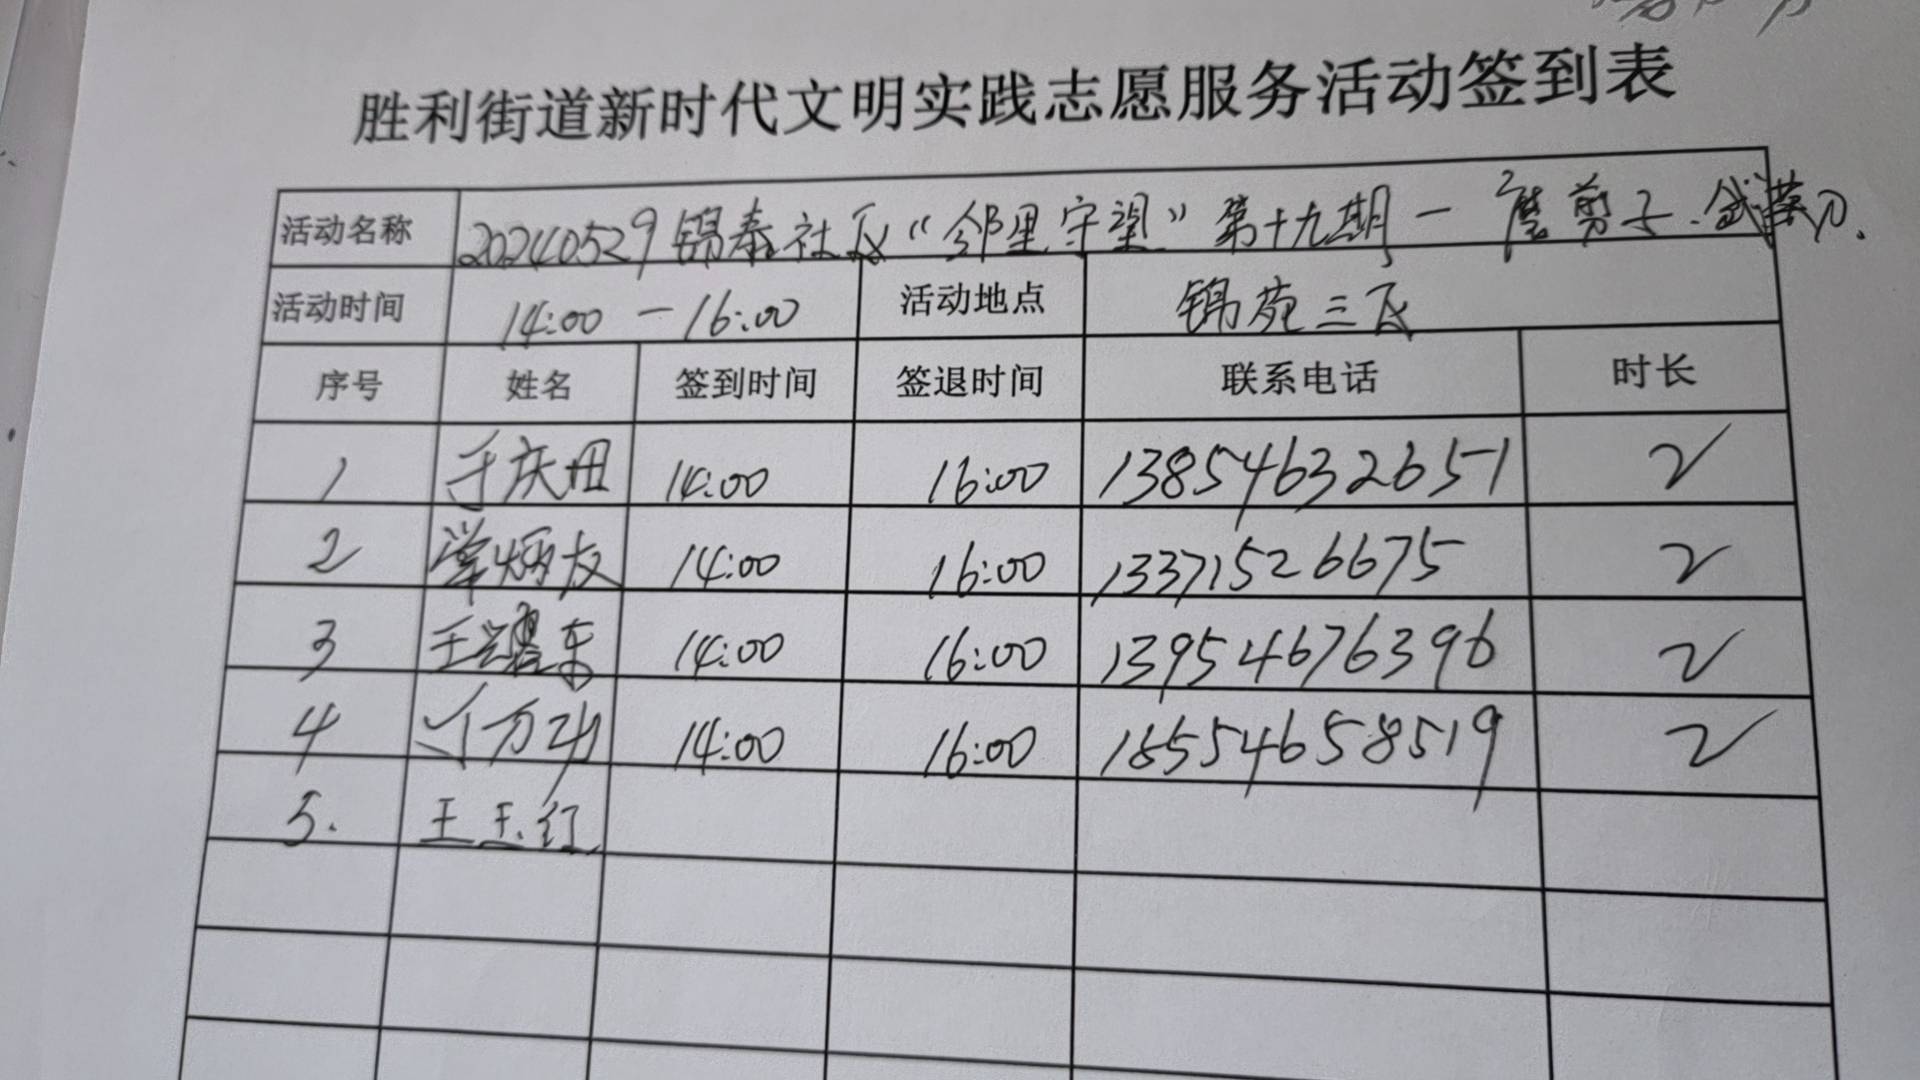 胜利街道新时代文明实践志愿服务活动签到表
活动名称 20240529锦泰社区“邻里守望”第十九期一磨剪子.戗菜刀.
活动时间 14:00 — 16:00 活动地点 锦苑三区
序号 姓名 签到时间 签退时间 联系电话 时长
1 于庆田 14:00 16:00 13854632651 2
2 14:00 16:00 13371526675 2
3 王耀东 14:00 16:00 13954676396 2
4 14:00 16:00 18554658519 2
5. 王玉红